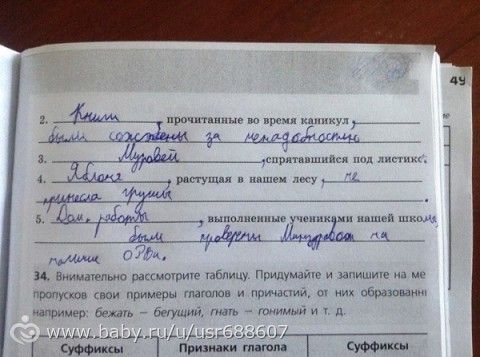 49
2. Книги, прочитанные во время каникул,
были сожжены за ненадобностью
3. Муравей, спрятавшийся под листик.
4. Яблоня, растущая в нашем лесу, не
принесла груши
5. Дом. работы, выполненные учениками нашей школы,
были проверены Минздравом на
наличие ОРВи.
34. Внимательно рассмотрите таблицу. Придумайте и запишите на ме
пропусков свои примеры глаголов и причастий, от них образованн
например: бежать – бегущий, гнать – гонимый и т. д.
Суффиксы Признаки глагола Суффиксы
www.baby.ru/u/usr688607